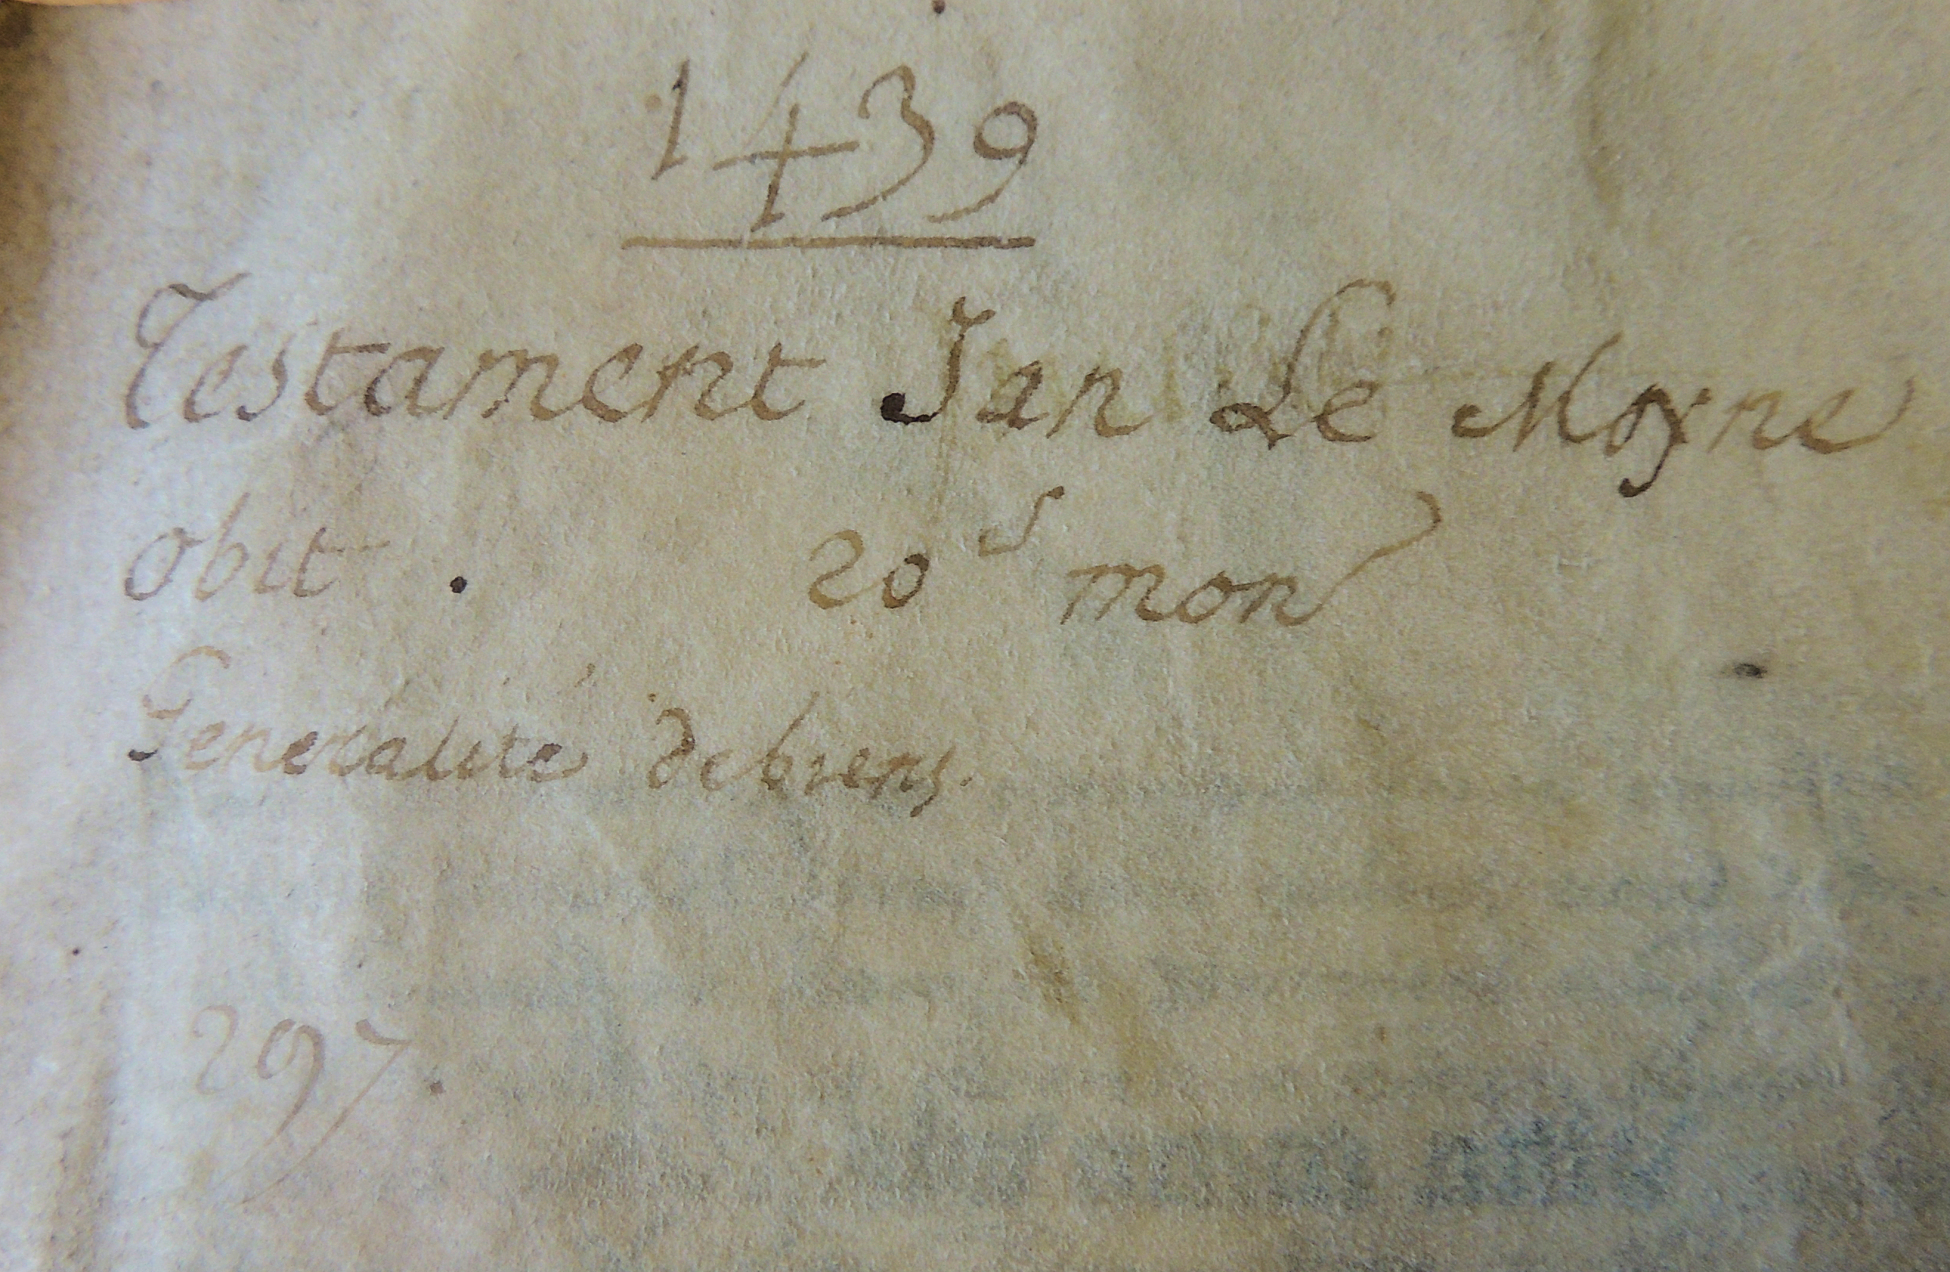 1439
Testament Jan Le Moyne
obit . 20s mon
Generalité debiens.
297.